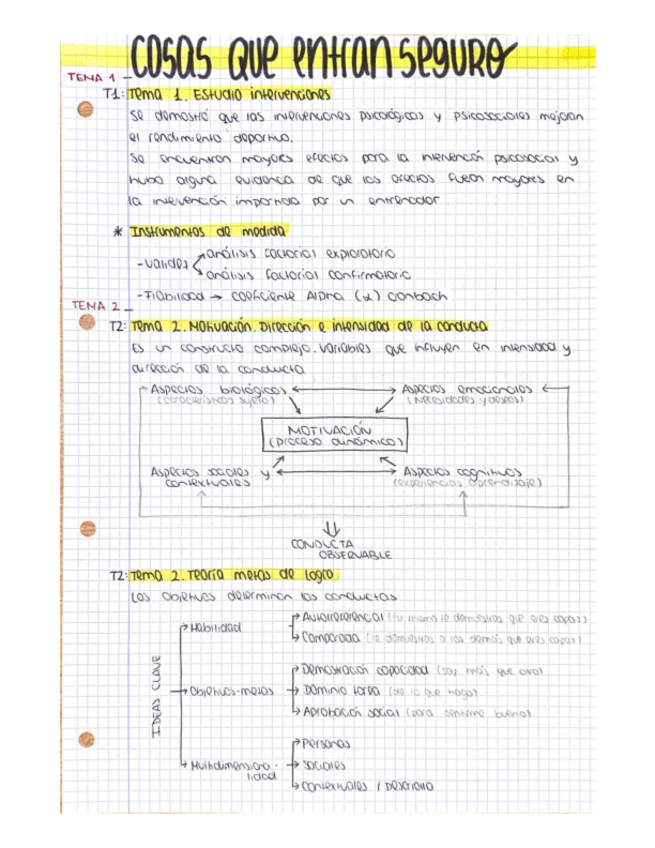 COSAS QUE ENTRAN SEGURO
TEMA 1
T1: Tema 1. Estudio intervenciones
Se demostró que las intervenciones psicológicas y psicosociales mejoran
el rendimiento deportivo.
Se encuentran mayores efectos para la intervención psicosocial y
hubo alguna evidencia de que los efectos fueron mayores en
la intervención impartida por un entrenador.
* Instrumentos de medida
-Validez
análisis factorial exploratorio
análisis factorial confirmatorio
-Fiabilidad → coeficiente Alpha (α) Conbach
TEMA 2
T2: Tema 2. Motivación. Dirección e intensidad de la conducta
Es un constructo complejo. Variables que influyen en intensidad y
dirección de la conducta
Aspectos biológicos
Aspectos emocionales
(características sujeto)
(Necesidades y deseos)
MOTIVACIÓN
(proceso dinámico)
Aspectos sociales y
contextuales
Aspectos cognitivos
(experiencias aprendizaje)
CONDUCTA
OBSERVABLE
T2: Tema 2. Teoría metas de logro
Los objetivos determinan las conductas
IDEAS CLAVE
Habilidad
Autorreferencial (tu misma te demuestras que eres capaz)
Comparada (le demuestras a los demás que eres capaz)
Objetivos-metas
Demostración capacidad (soy más que otro)
Dominio tarea (de lo que hago)
Aprobación social (para sentirme bueno)
Multidimensiona-
lidad
Personas
Sociales
Contextuales / Desarrollo